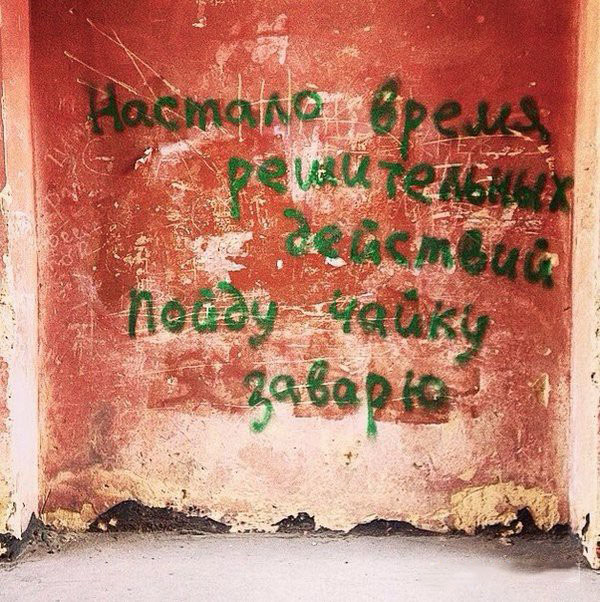 Настало время
решительных
действий
Пойду чайку
заварю